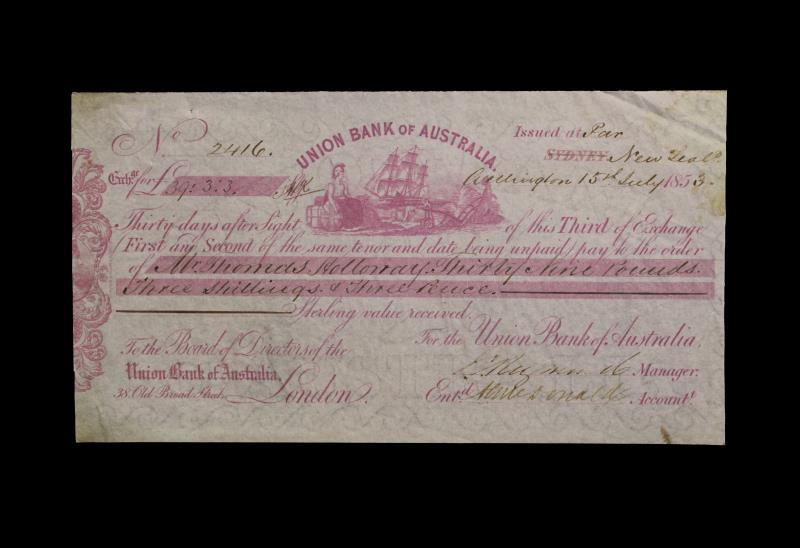 No 2416.
UNION BANK OF AUSTRALIA.
Issued at Par
SYDNEY New Zeald.
Exchge for £39: 3: 3,
Wellington 15th July 1853.
Thirty days after Sight of this Third of Exchange
(First and Second of the same tenor and date being unpaid) pay to the order
of Mr Thomas Holloway. Thirty Nine Pounds.
Three Shillings. & Three Pence.
Sterling value received.
To the Board of Directors of the
For the Union Bank of Australia,
Union Bank of Australia,
Manager.
38, Old Broad Street, London.
Entd. Accountt.